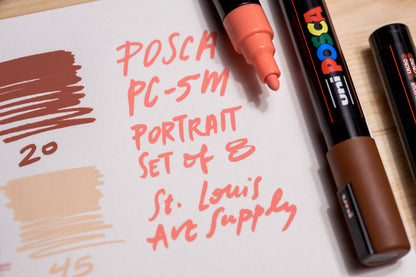 POSCA
PC-5M
PORTRAIT
SET of 8
St. Louis
Art Supply
20
45
uni POSCA